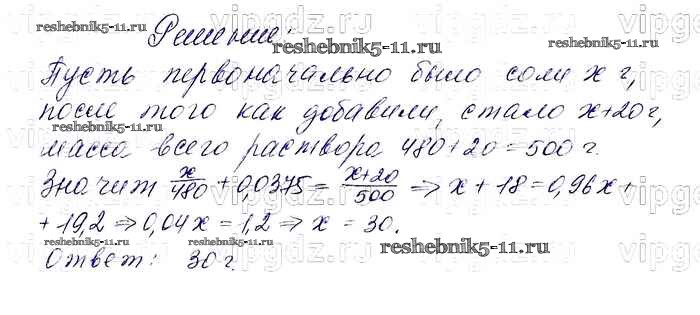 Решение:
Пусть первоначально было соли x г,
после того как добавили, стало x+20 г,
масса всего раствора 480+20=500 г.
Значит x/480 + 0,0375 = x+20/500 ⇒ x + 18 = 0,96x +
+ 19,2 ⇒ 0,04x = 1,2 ⇒ x = 30.
Ответ: 30 г.
reshebnik5-11.ru
reshebnik5-11.ru
reshebnik5-11.ru
reshebnik5-11.ru
vipgdz.ru
vipgdz.ru
vipgdz.ru
vipgdz.ru